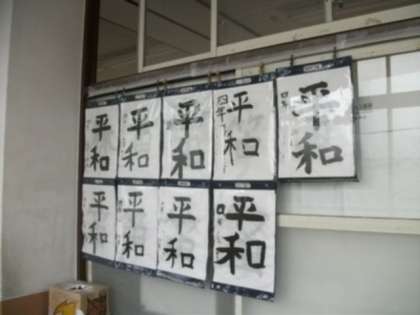 平和
平和
平和
平和
平和
平和
平和
平和
平和